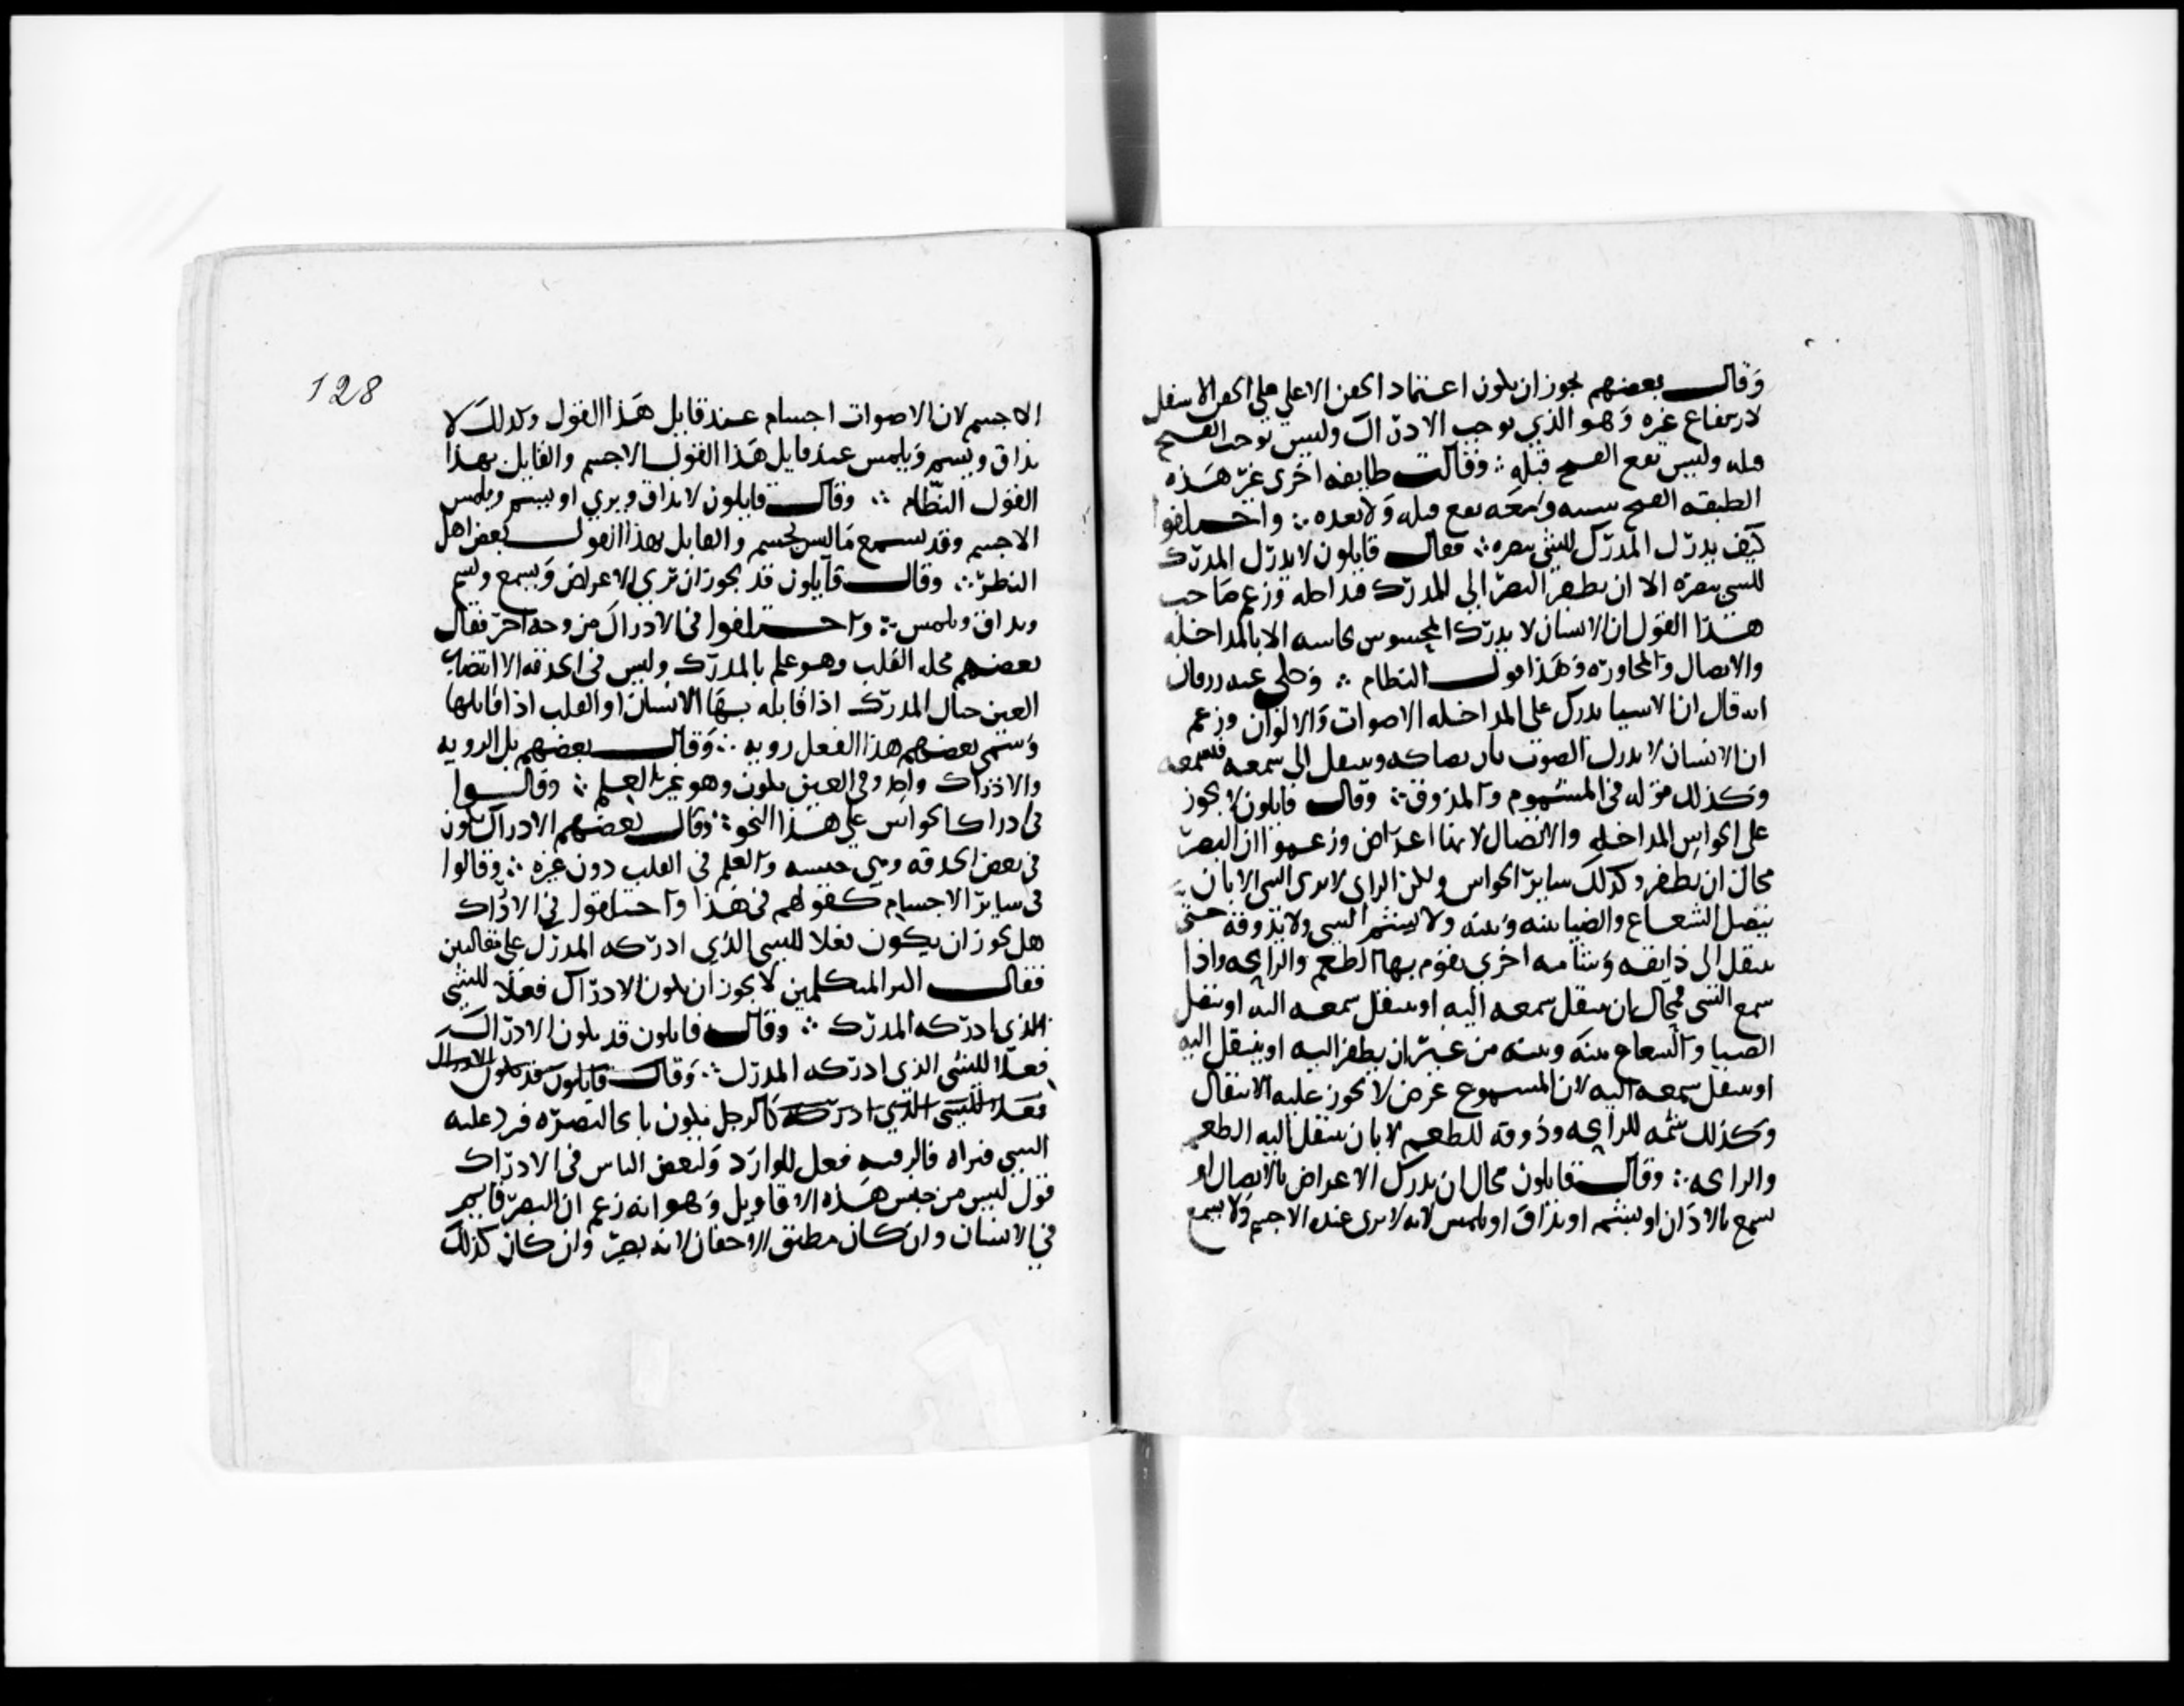 وقال بعضهم يجوز ان يكون اعتماد الجفن الاعلى على الجفن الاسفل
لارتفاع غيره وهو الذي يوجب الادراك وليس يوجب الفتح
قبله وليس يقع الفتح قبله ∴ وقالت طايفه اخرى غير هذه
الطبقه الفتح سببه ومعه يقع قبله ولا بعده ∴ واختلفوا
كيف يدرك المدرك للشي ببصره ∴ فقال قايلون لا يدرك المدرك
للشي ببصره الا ان يطفر البصر الى المدرك فيداخله وزعم صاحب
هذا القول ان الانسان لا يدرك المحسوس بحاسه الا بالمداخله
والاتصال والمجاوره وهذا قول النظام ∴ وحكى عنه زرقان
انه قال ان الاشيا تدرك على المداخله الاصوات والالوان وزعم
ان الانسان لا يدرك الصوت بان يصاكه وينتقل الى سمعه فيسمعه
وكذلك قوله في المشموم والمذوق ∴ وقال قايلون لا يجوز
على الحواس المداخله والاتصال لانها اعراض وزعموا ان البصر
محال ان يطفر وكذلك ساير الحواس ولكن الراي لا يرى الشي الا بان
يتصل الشعاع والضيا بينه وبينه ولا يشتم الشي ولا يذوقه حتى
ينتقل الى ذايقه وشامه اخرى يقوم بها الطعم والرايحه واذا
سمع الشي فمحال بان ينتقل سمعه اليه او ينتقل سمعه اليه او ينتقل
الضيا والشعاع بينه وبينه من غير ان يطفر اليه او ينتقل اليه
او ينتقل سمعه اليه لان المسموع عرض لا يجوز عليه الانتقال
وكذلك شمه للرايحه وذوقه للطعم لا بان ينتقل اليه الطعم
والرايحه ∴ وقال قايلون محال ان يدرك الاعراض بالاتصال او
يسمع بالاذان او يشتم او يذاق او يلمس لانه لا يرى عنده الا جسم ولا يسمع
128
الا جسم لان الاصوات اجسام عند قايل هذا القول وكذلك لا
يذاق ويشم ويلمس عند قايل هذا القول الا جسم والقايل بهذا
القول النظام ∴ وقال قايلون لا يذاق ويرى او يشم ويلمس
الا جسم وقد يسمع ما ليس بجسم والقايل بهذا القول بعض اهل
النظر ∴ وقال قايلون قد يجوز ان ترى الاعراض ويسمع ويشم
ويذاق ويلمس ∴ واختلفوا في الادراك من وجه اخر فقال
بعضهم محله القلب وهو علم بالمدرك وليس في الحدقه الا انتصاب
العين حيال المدرك اذا قابله بها الانسان او القلب اذا قابلها
وسمى بعضهم هذا الفعل رويه ∴ وقال بعضهم بل الرويه
والادراك واحد وفي العين يكون وهو غير العلم ∴ وقالوا
في ادراك الحواس على هذا النحو ∴ وقال بعضهم الادراك يكون
في بعض الحدقه وهي حسه والعلم في القلب دون غيره ∴ وقالوا
في ساير الاجسام كقولهم في هذا واختلفوا في الادراك
هل يجوز ان يكون فعلا للشي الذي ادركه المدرك على مقالتين
فقال اكثر المتكلمين لا يجوز ان يكون الادراك فعلا للشي
الذي ادركه المدرك ∴ وقال قايلون قد يكون الادراك
فعلا للشي الذي ادركه المدرك ∴ وقال قايلون قد يكون الادراك
فعلا للشي الذي ادركه كالرجل يكون فاتحا لبصره فيرد عليه
الشي فيراه فالرؤيه فعل للوارد ولبعض الناس في الادراك
قول ليس من جنس هذه الاقاويل وهو انه زعم ان البصر قايم
في الانسان وان كان مطبق الاجفان لانه بصير وان كان كذلك